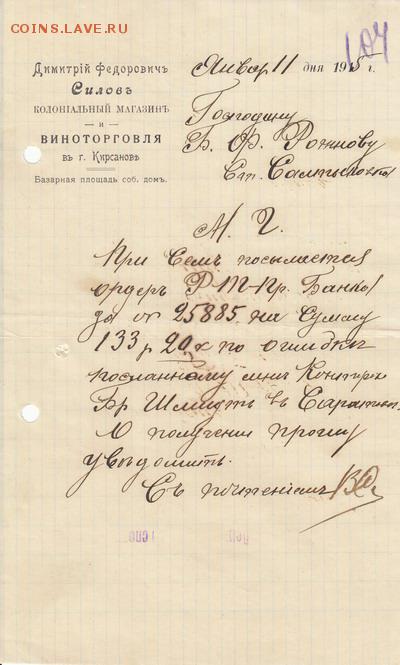 COINS.LAVE.RU
104
Димитрій Федоровичъ
Силовъ
КОЛОНІАЛЬНЫЙ МАГАЗИНЪ
— и —
ВИНОТОРГОВЛЯ
въ г. Кирсановѣ
Базарная площадь соб. домъ.
Январ 11 дня 1915 г.
Господину
Б. Ф. Рожнову
Ст.
М. Г.
При Семъ посылается
ордеръ Р-Т-Пр. Банка
за № 25885 на Сумму
133 р 20 к по ошибки
посланному мнѣ
Бр Шмидтъ въ
О получении прошу
увѣдомить.
Съ почтенiемъ